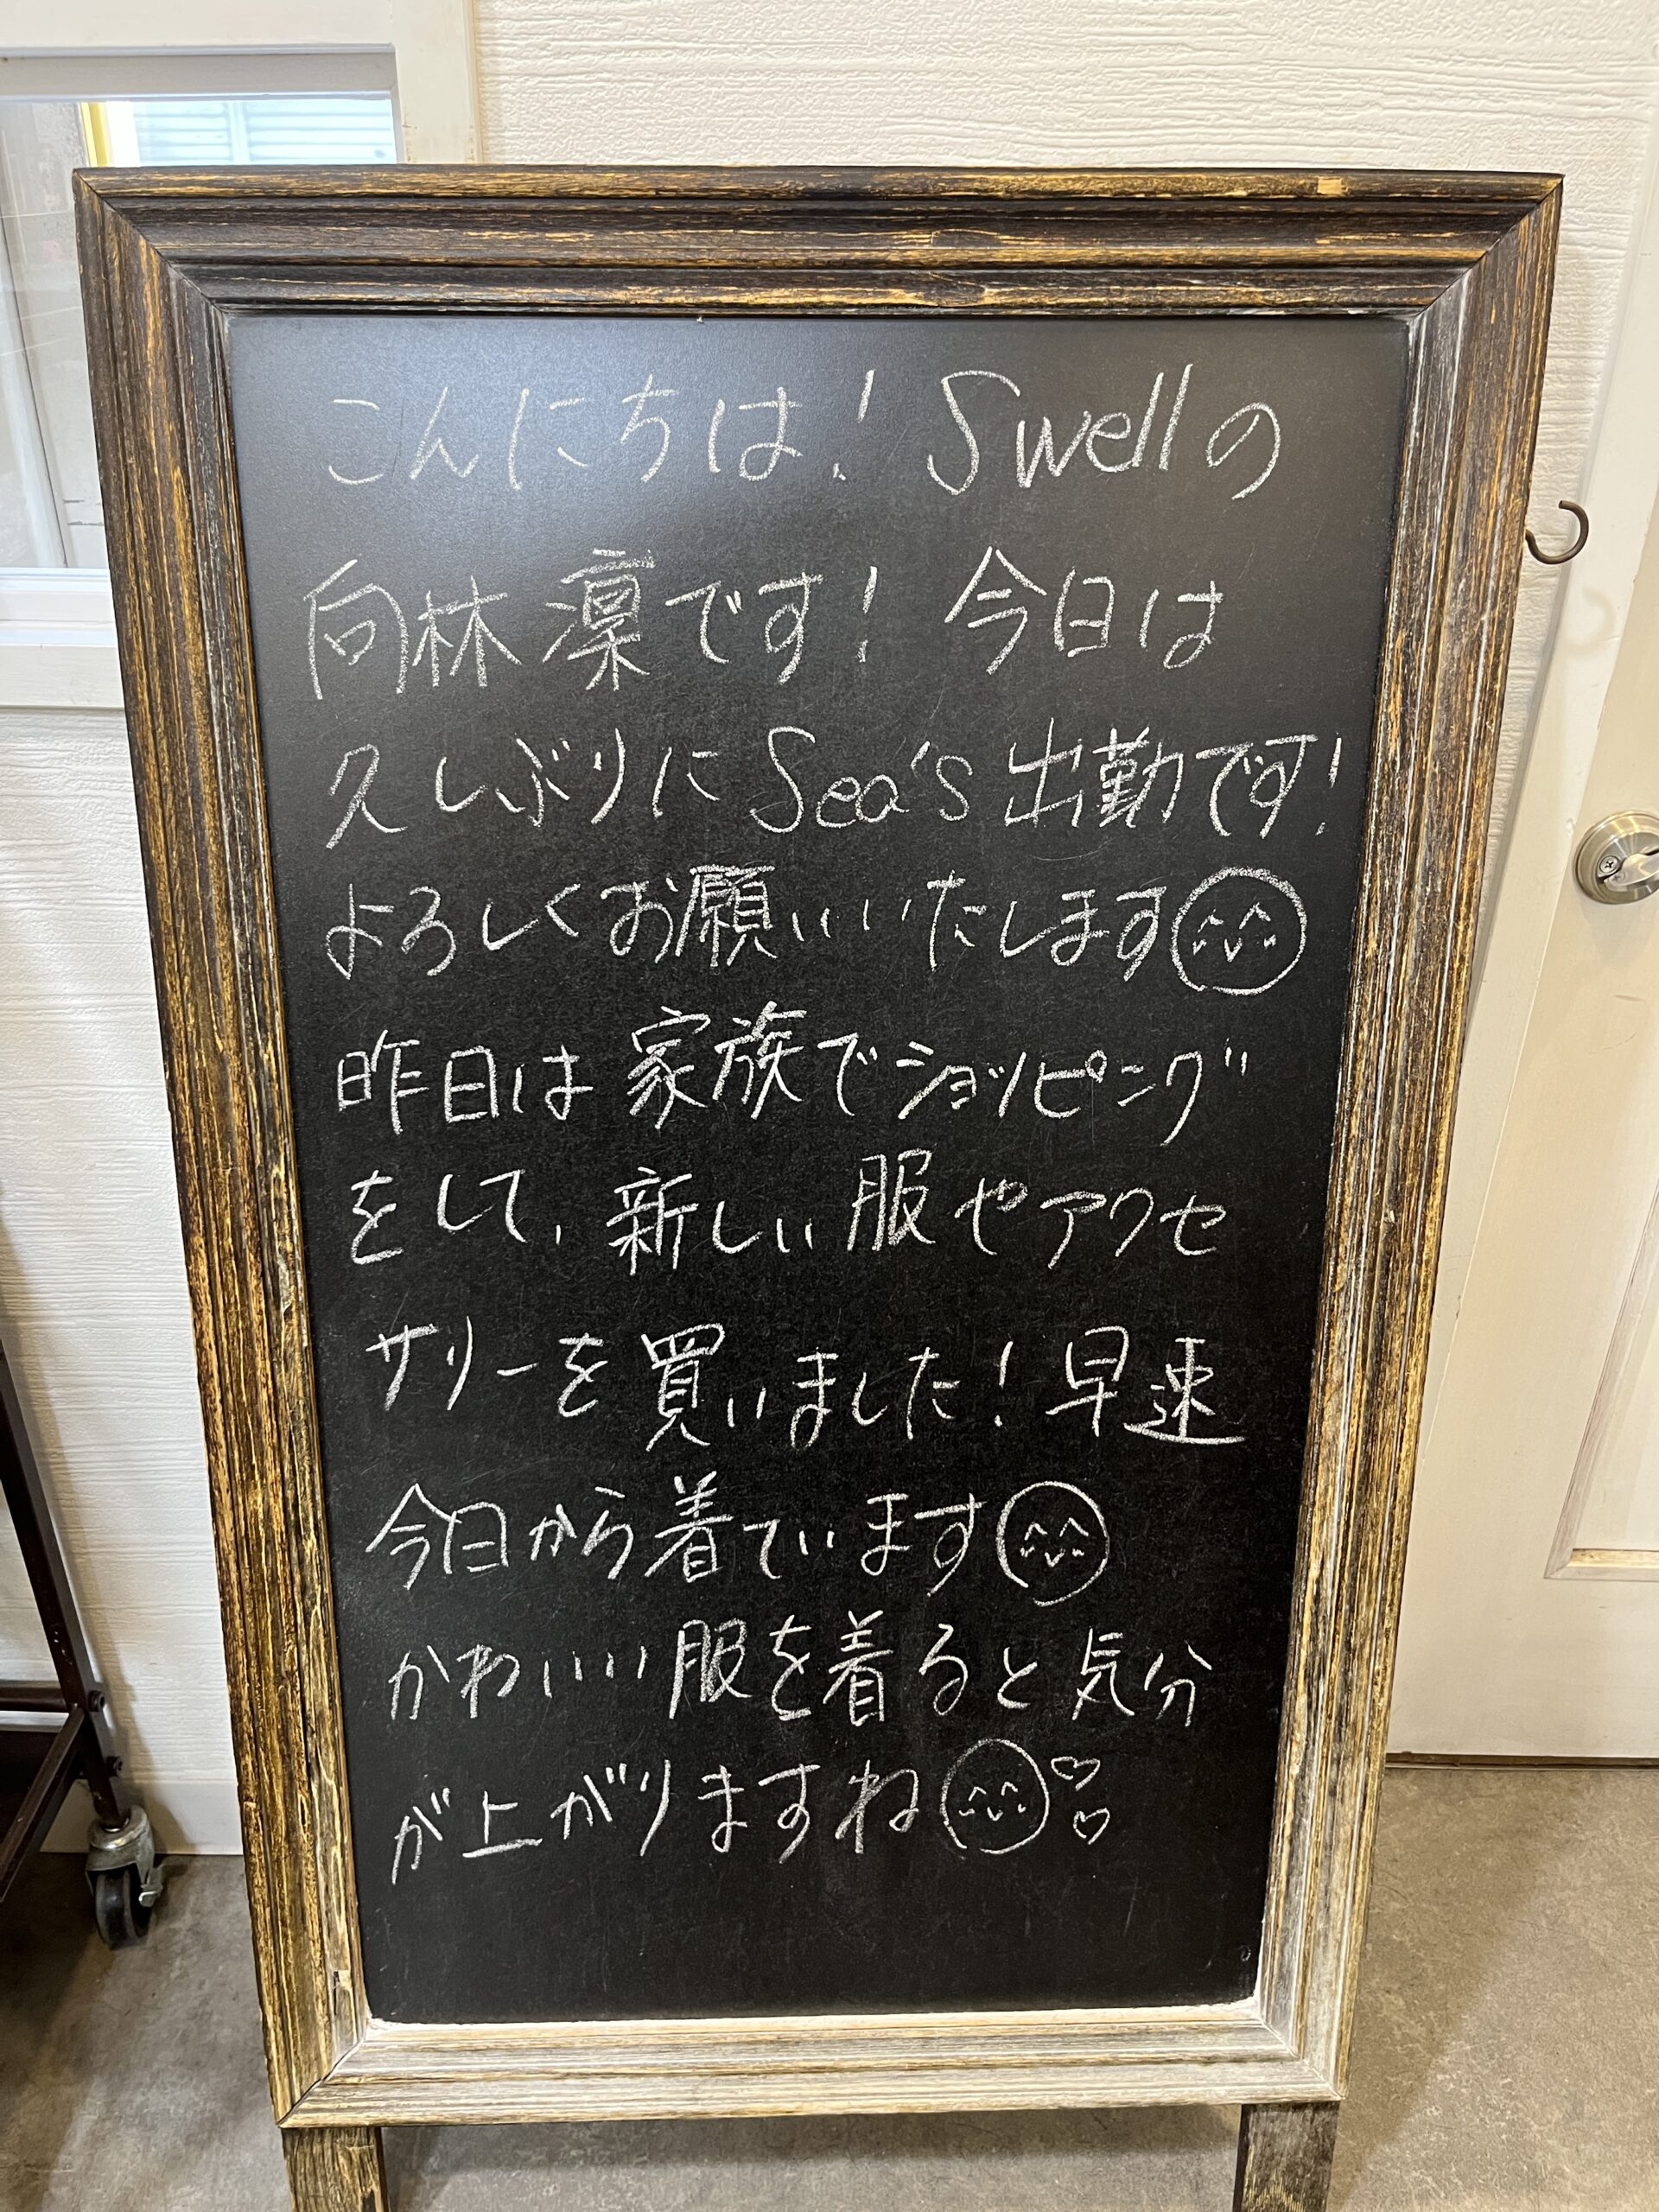 こんにちは! Swellの
向林 凜です! 今日は
久しぶりに Sea's 出勤です!
よろしくお願いいたします
昨日は 家族でショッピング
をして、新しい 服やアクセ
サリーを買いました! 早速
今日から着ています
かわいい服を着ると気分
が上がりますね